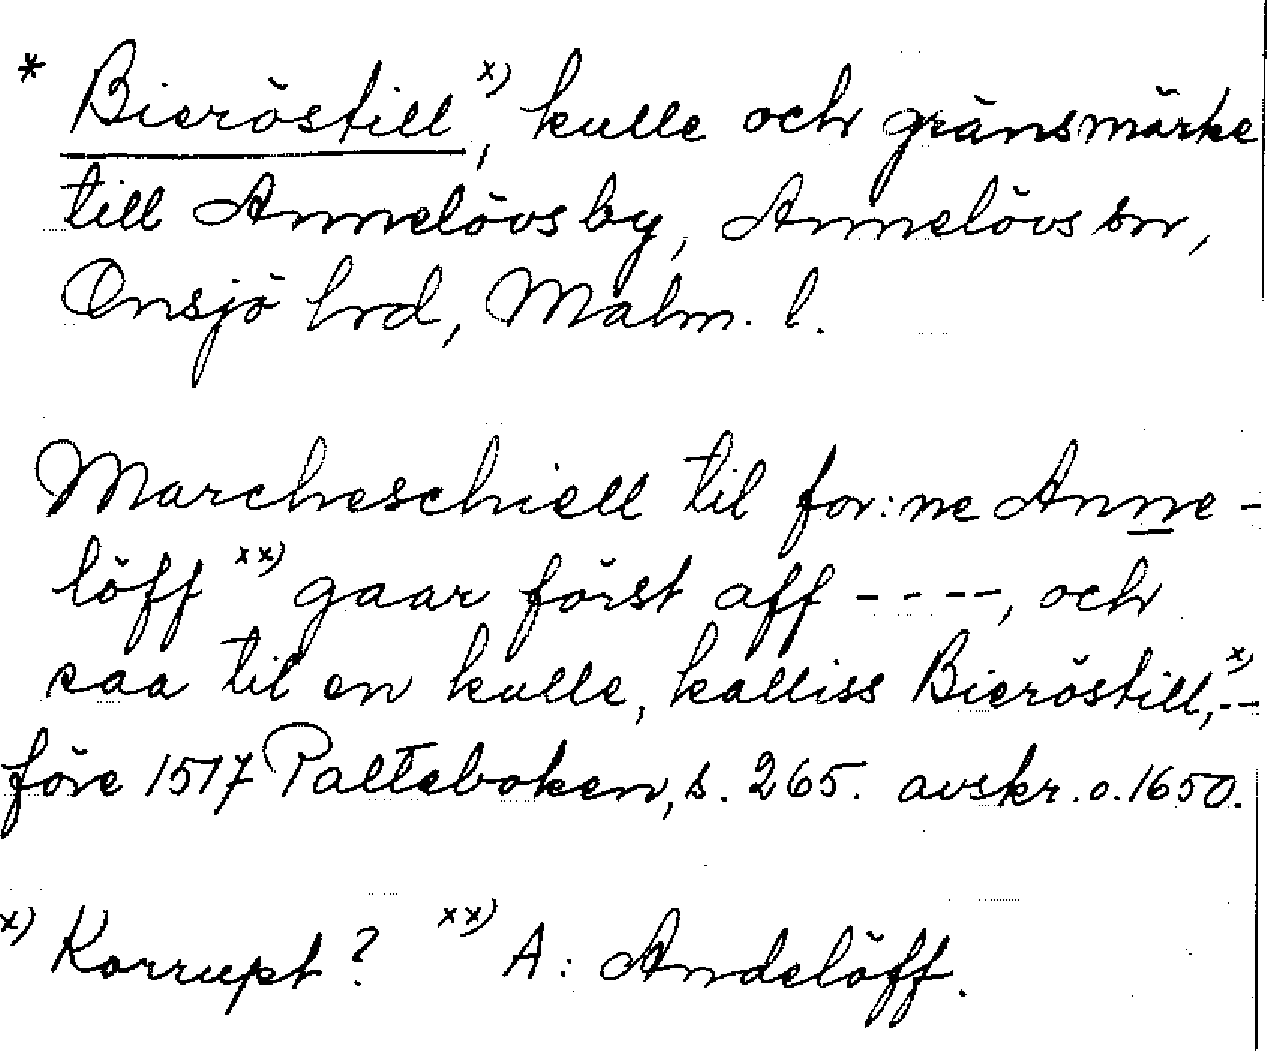 * Bieröstill x), kulle och gränsmärke
till Annelövs by, Annelövs sn,
Onsjö hrd, Malm. l.
Marcheschiell til for:ne Anne-
löff xx) gaar först aff ----, och
saa til en kulle, kalliss Bieröstill, x) --
före 1517 Palteboken, s. 265. avskr. o. 1650.
x) Korrupt? xx) A: Andelöff.